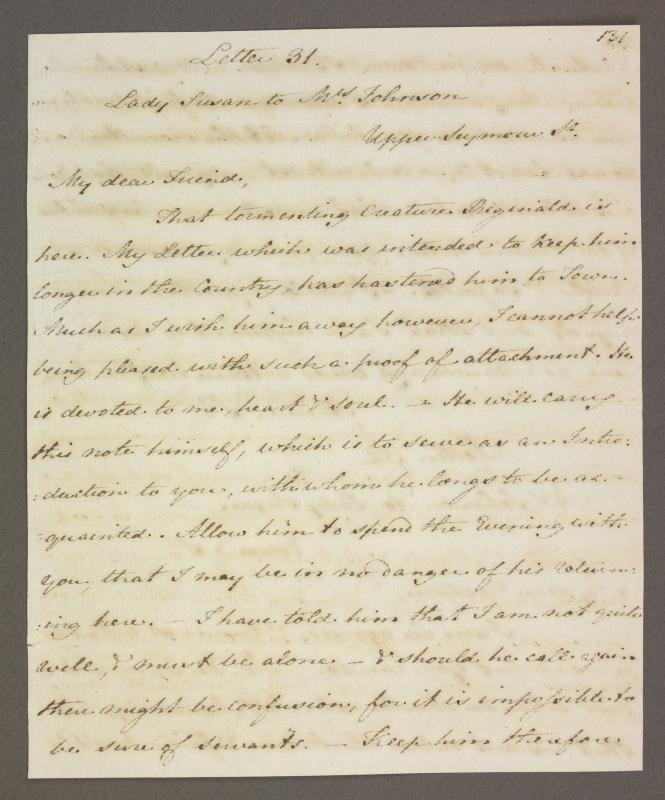 131
Letter 31.
Lady Susan to Mrs Johnson
Upper Seymour St.
My dear Friend,
That tormenting Creature Reginald is
here. My Letter which was intended to keep him
longer in the Country, has hastened him to Town.
Much as I wish him away however, I cannot help
being pleased with such a proof of attachment. He
is devoted to me, heart & soul. - He will carry
this note himself, which is to serve as an Intro:
:duction to you, with whom he longs to be ac-
:quainted. Allow him to spend the Evening with
you, that I may be in no danger of his return:
:ing here. - I have told him that I am not quite
well, & must be alone - & should he call again
there might be confusion, for it is impossible to
be sure of servants. - Keep him therefore